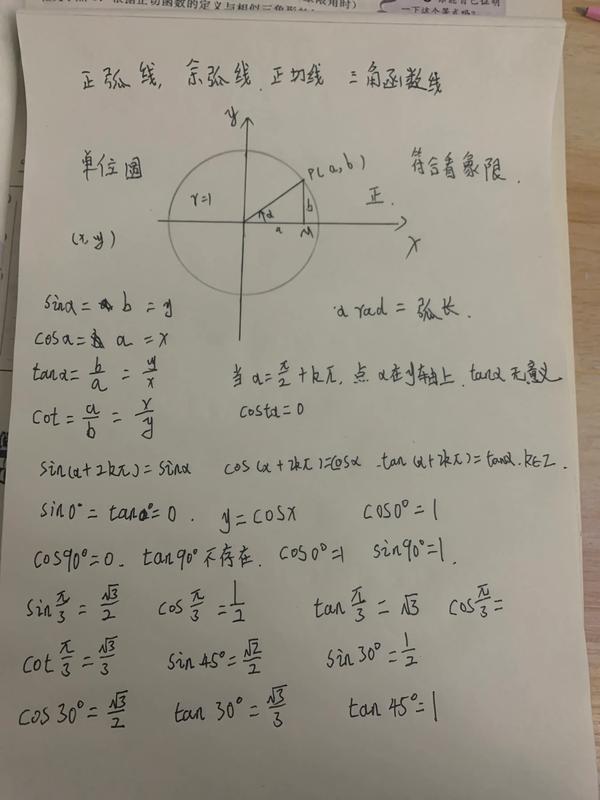 根据正切函数的定义与相似三角形的
正弧线, 余弧线, 正切线 三角函数线
y
单位圆
P(a,b)
符合看象限.
r=1
正.
α
b
a
M
X
(x,y)
sinα= b = y
α rad = 弧长.
cosα= a = x
tanα= b/a = y/x
当 α= π/2 +kπ, 点 α在y轴上, tanα 无意义
cot = a/b = x/y
costα=0
sin(α+2kπ)=sinα cos(α+2kπ)=cosα tan(α+2kπ)=tanα. k∈Z.
sin0°= tan0°=0. y=cosx cos0°=1
cos90°=0. tan90°不存在. cos0°=1 sin90°=1.
sin π/3 = √3/2 cos π/3 = 1/2 tan π/3 = √3 cos π/3 =
cot π/3 = √3/3 sin 45°= √2/2 sin 30°= 1/2
cos 30°= √3/2 tan 30°= √3/3 tan 45°=1